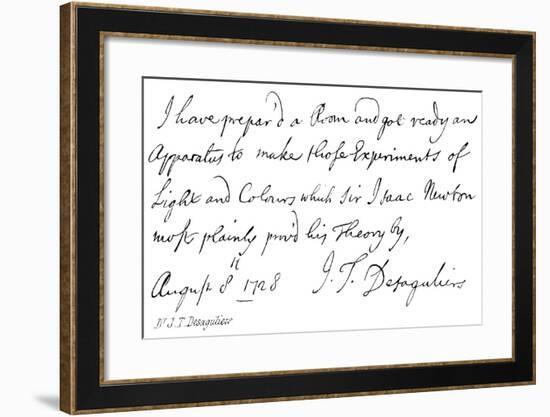 I have prepar'd a Room and got ready an
Apparatus to make those Experiments of
Light and Colours which Sir Isaac Newton
most plainly prov'd his Theory by,
August 8th 1728 J. T. Desaguliers
Dr J. T. Desaguliers